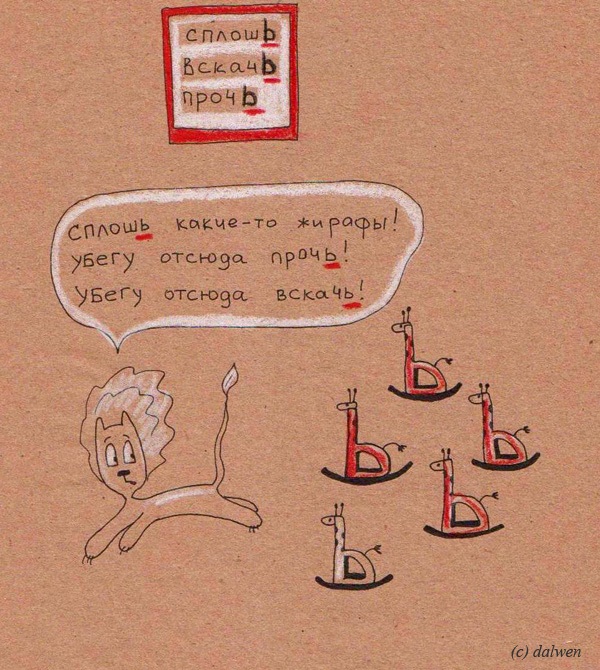 сплошь
вскачь
прочь
Сплошь какие-то жирафы!
Убегу отсюда прочь!
Убегу отсюда вскачь!
(c) dalwen